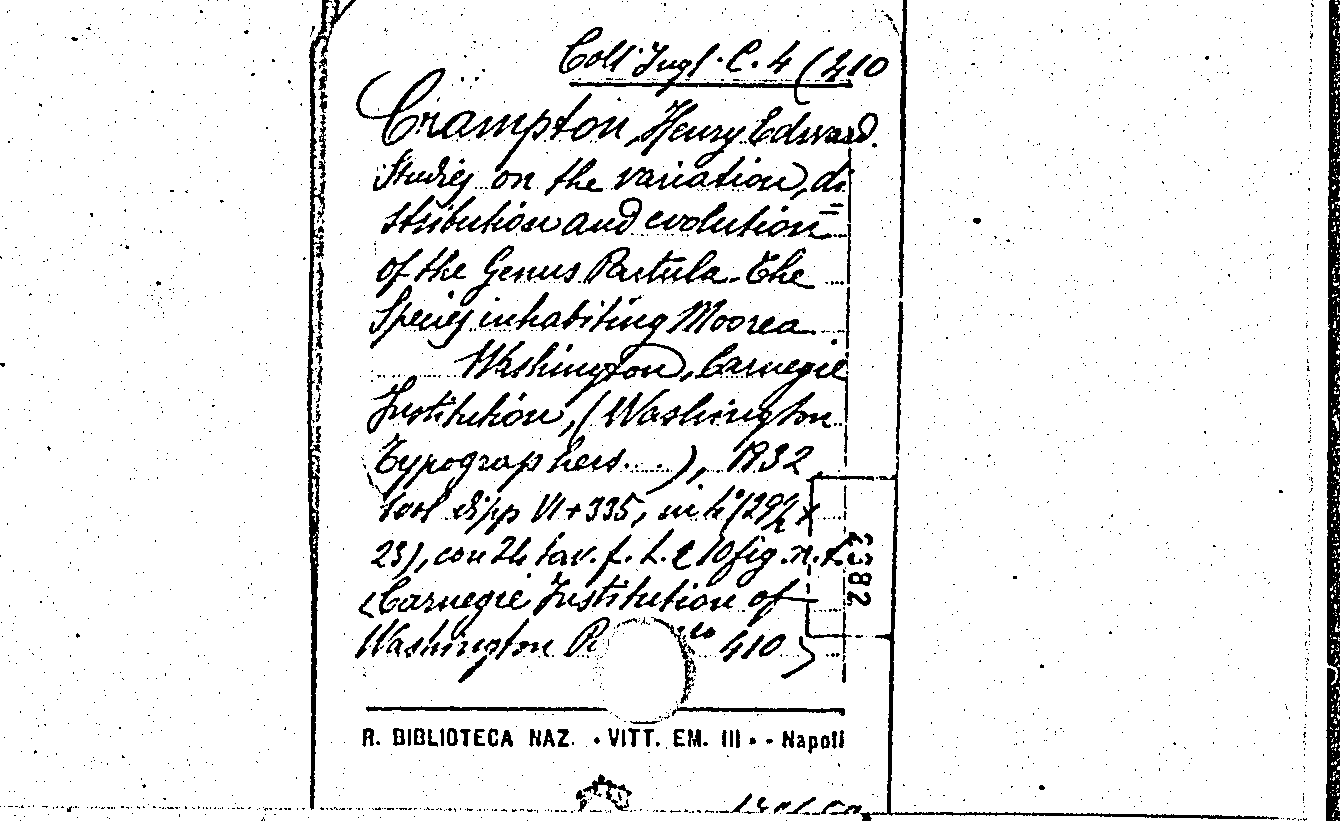 Coll. Ingl. C. 4 (410
Crampton, Henry Edward.
Studies on the variation, di=
stribution and evolution
of the Genus Partula. The
Species inhabiting Moorea
Washington, Carnegie
Institution, (Washington
Typographers...), 1932
vol di pp VI+335, in 4° (29½ x
23), con 24 tav. f. t. e 10 fig. n. t.
(Carnegie Institution of
Washington 410)
2382
R. BIBLIOTECA NAZ. • VITT. EM. III • - Napoli